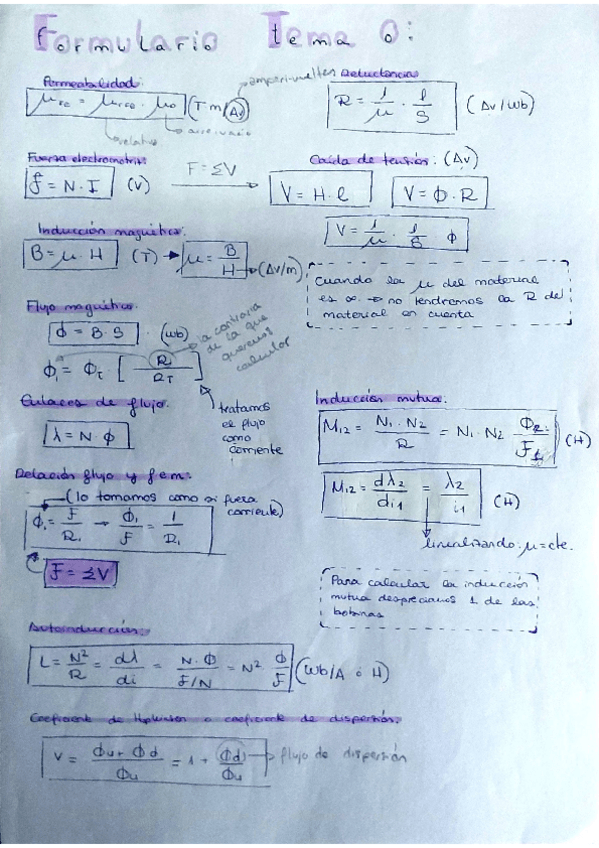 Formulario Tema 0:
Permeabilidad:
amperi-vueltas
μFe = μrFe · μ0 (T m/Av)
relativa
aire-vacío
Reluctancia
R = 1/μ · l/S (Av/Wb)
Fuerza electromotriz
F = N · I (V)
F = ΣV
Caída de tensión: (Av)
V = H · l
V = Φ · R
V = 1/μ · l/S Φ
Inducción magnética:
B = μ · H (T) → μ = B/H → (Av/m)
Cuando la μ del material
es ∞ → no tendremos la R del
material en cuenta
Flujo magnético:
Φ = B · S (Wb)
Φ1 = ΦT [ R / RT ]
la contraria
de la que
queremos
calcular
tratamos
el flujo
como
corriente
Enlaces de flujo:
λ = N · Φ
Inducción mutua:
M12 = N1 · N2 / R = N1 · N2 Φ2 / F1 (H)
M12 = dλ2 / di1 = λ2 / i1 (H)
linealizando: μ = cte.
Relación flujo y fem:
(lo tomamos como si fuera
corriente)
Φ1 = F / R1 → Φ1 / F = 1 / R1
F = ΣV
Para calcular la inducción
mutua despreciamos 1 de las
bobinas
Autoinducción:
L = N² / R = dλ / di = N · Φ / F/N = N² · Φ / F (Wb/A ó H)
Coeficiente de Hopkinson o coeficiente de dispersión:
V = Φu + Φd / Φu = 1 + Φd / Φu → flujo de dispersión